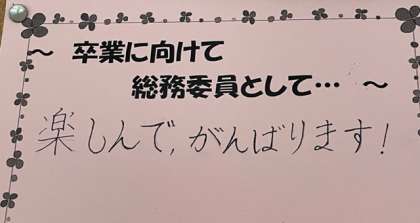 ～ 卒業に向けて
総務委員として… ～
楽しんで,がんばります!